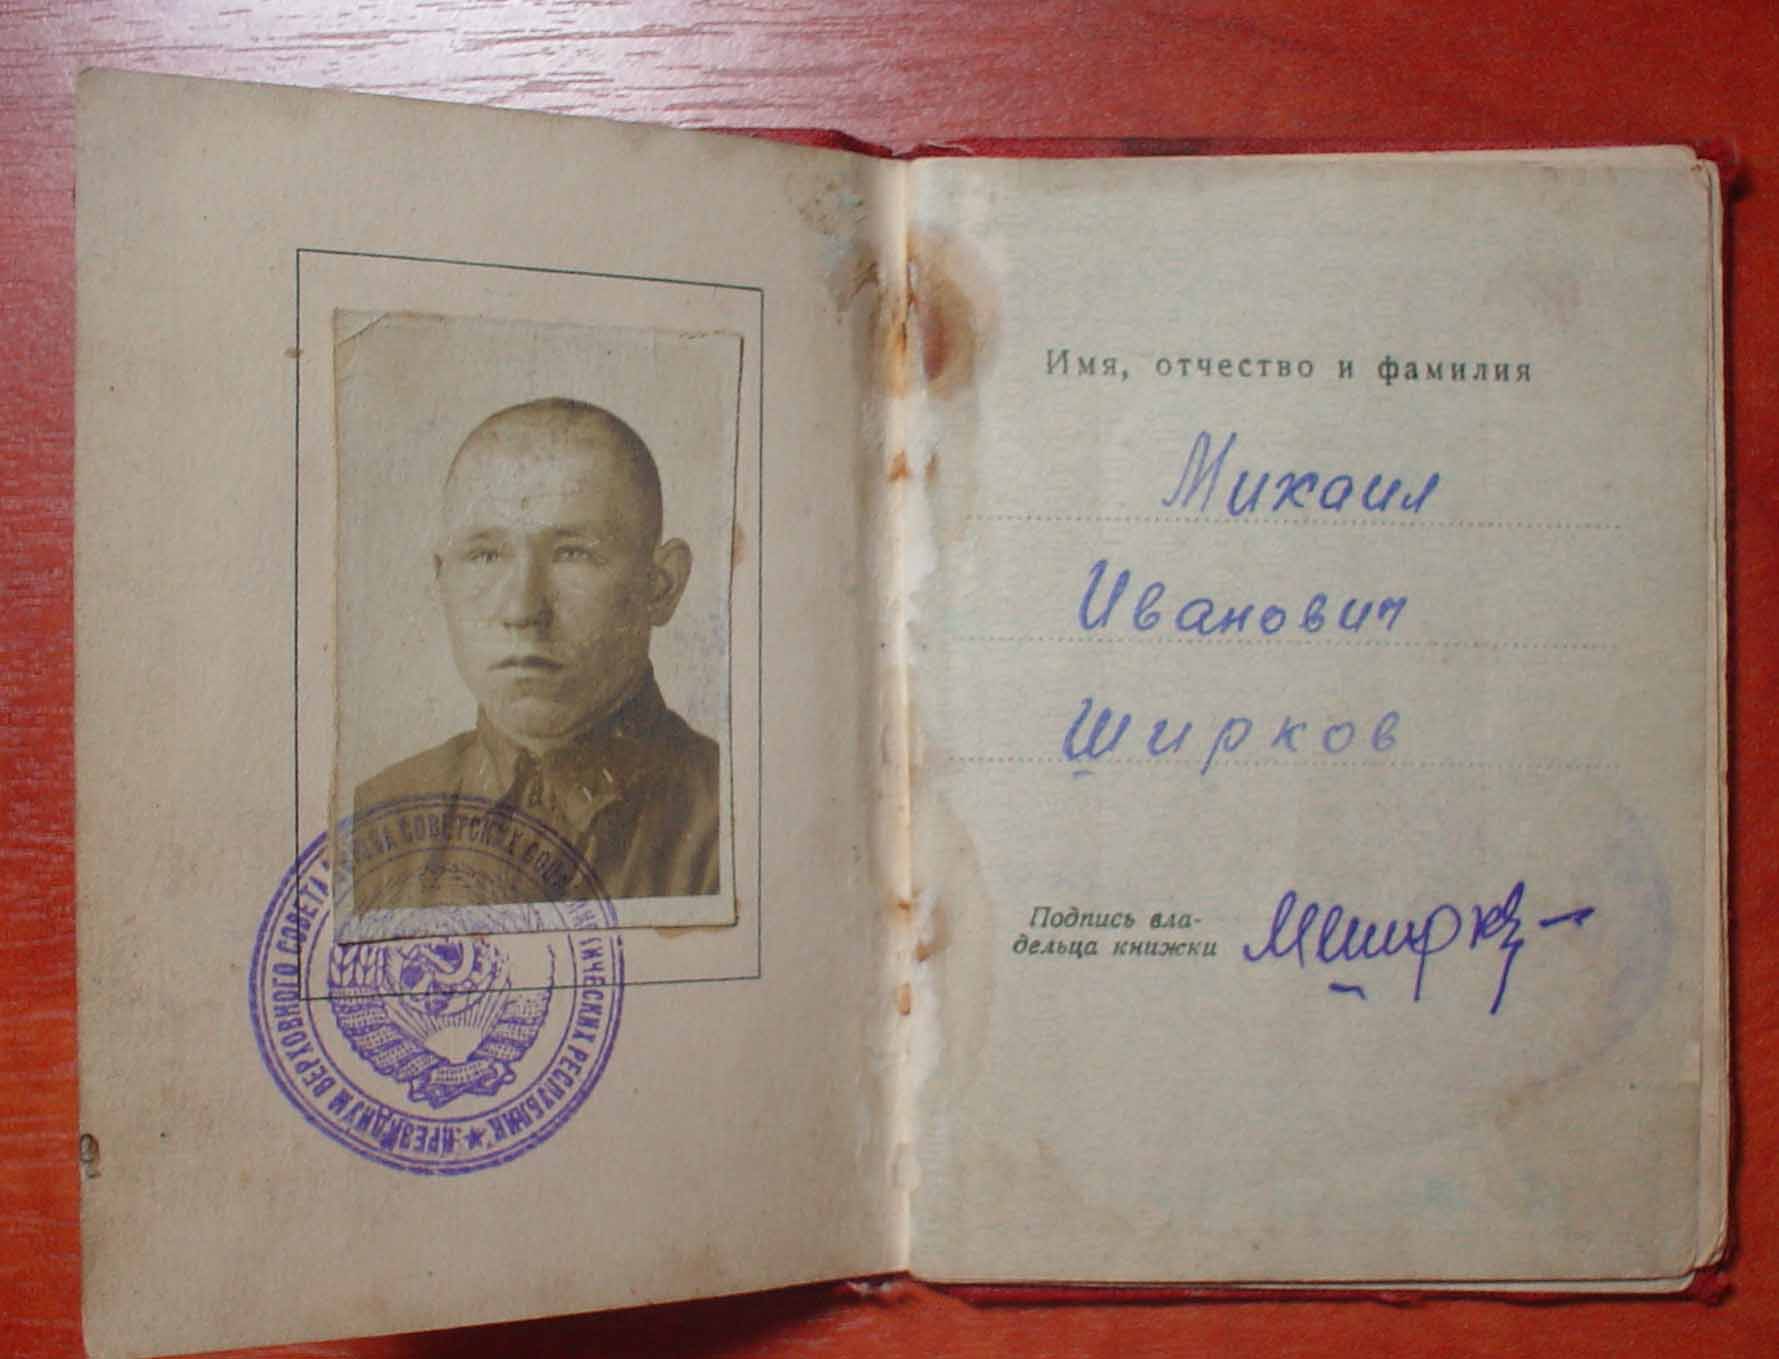 ПРЕЗИДИУМ ВЕРХОВНОГО СОВЕТА СОЮЗА СОВЕТСКИХ СОЦИАЛИСТИЧЕСКИХ РЕСПУБЛИК
Имя, отчество и фамилия
Михаил
Иванович
Ширков
Подпись вла-
дельца книжки